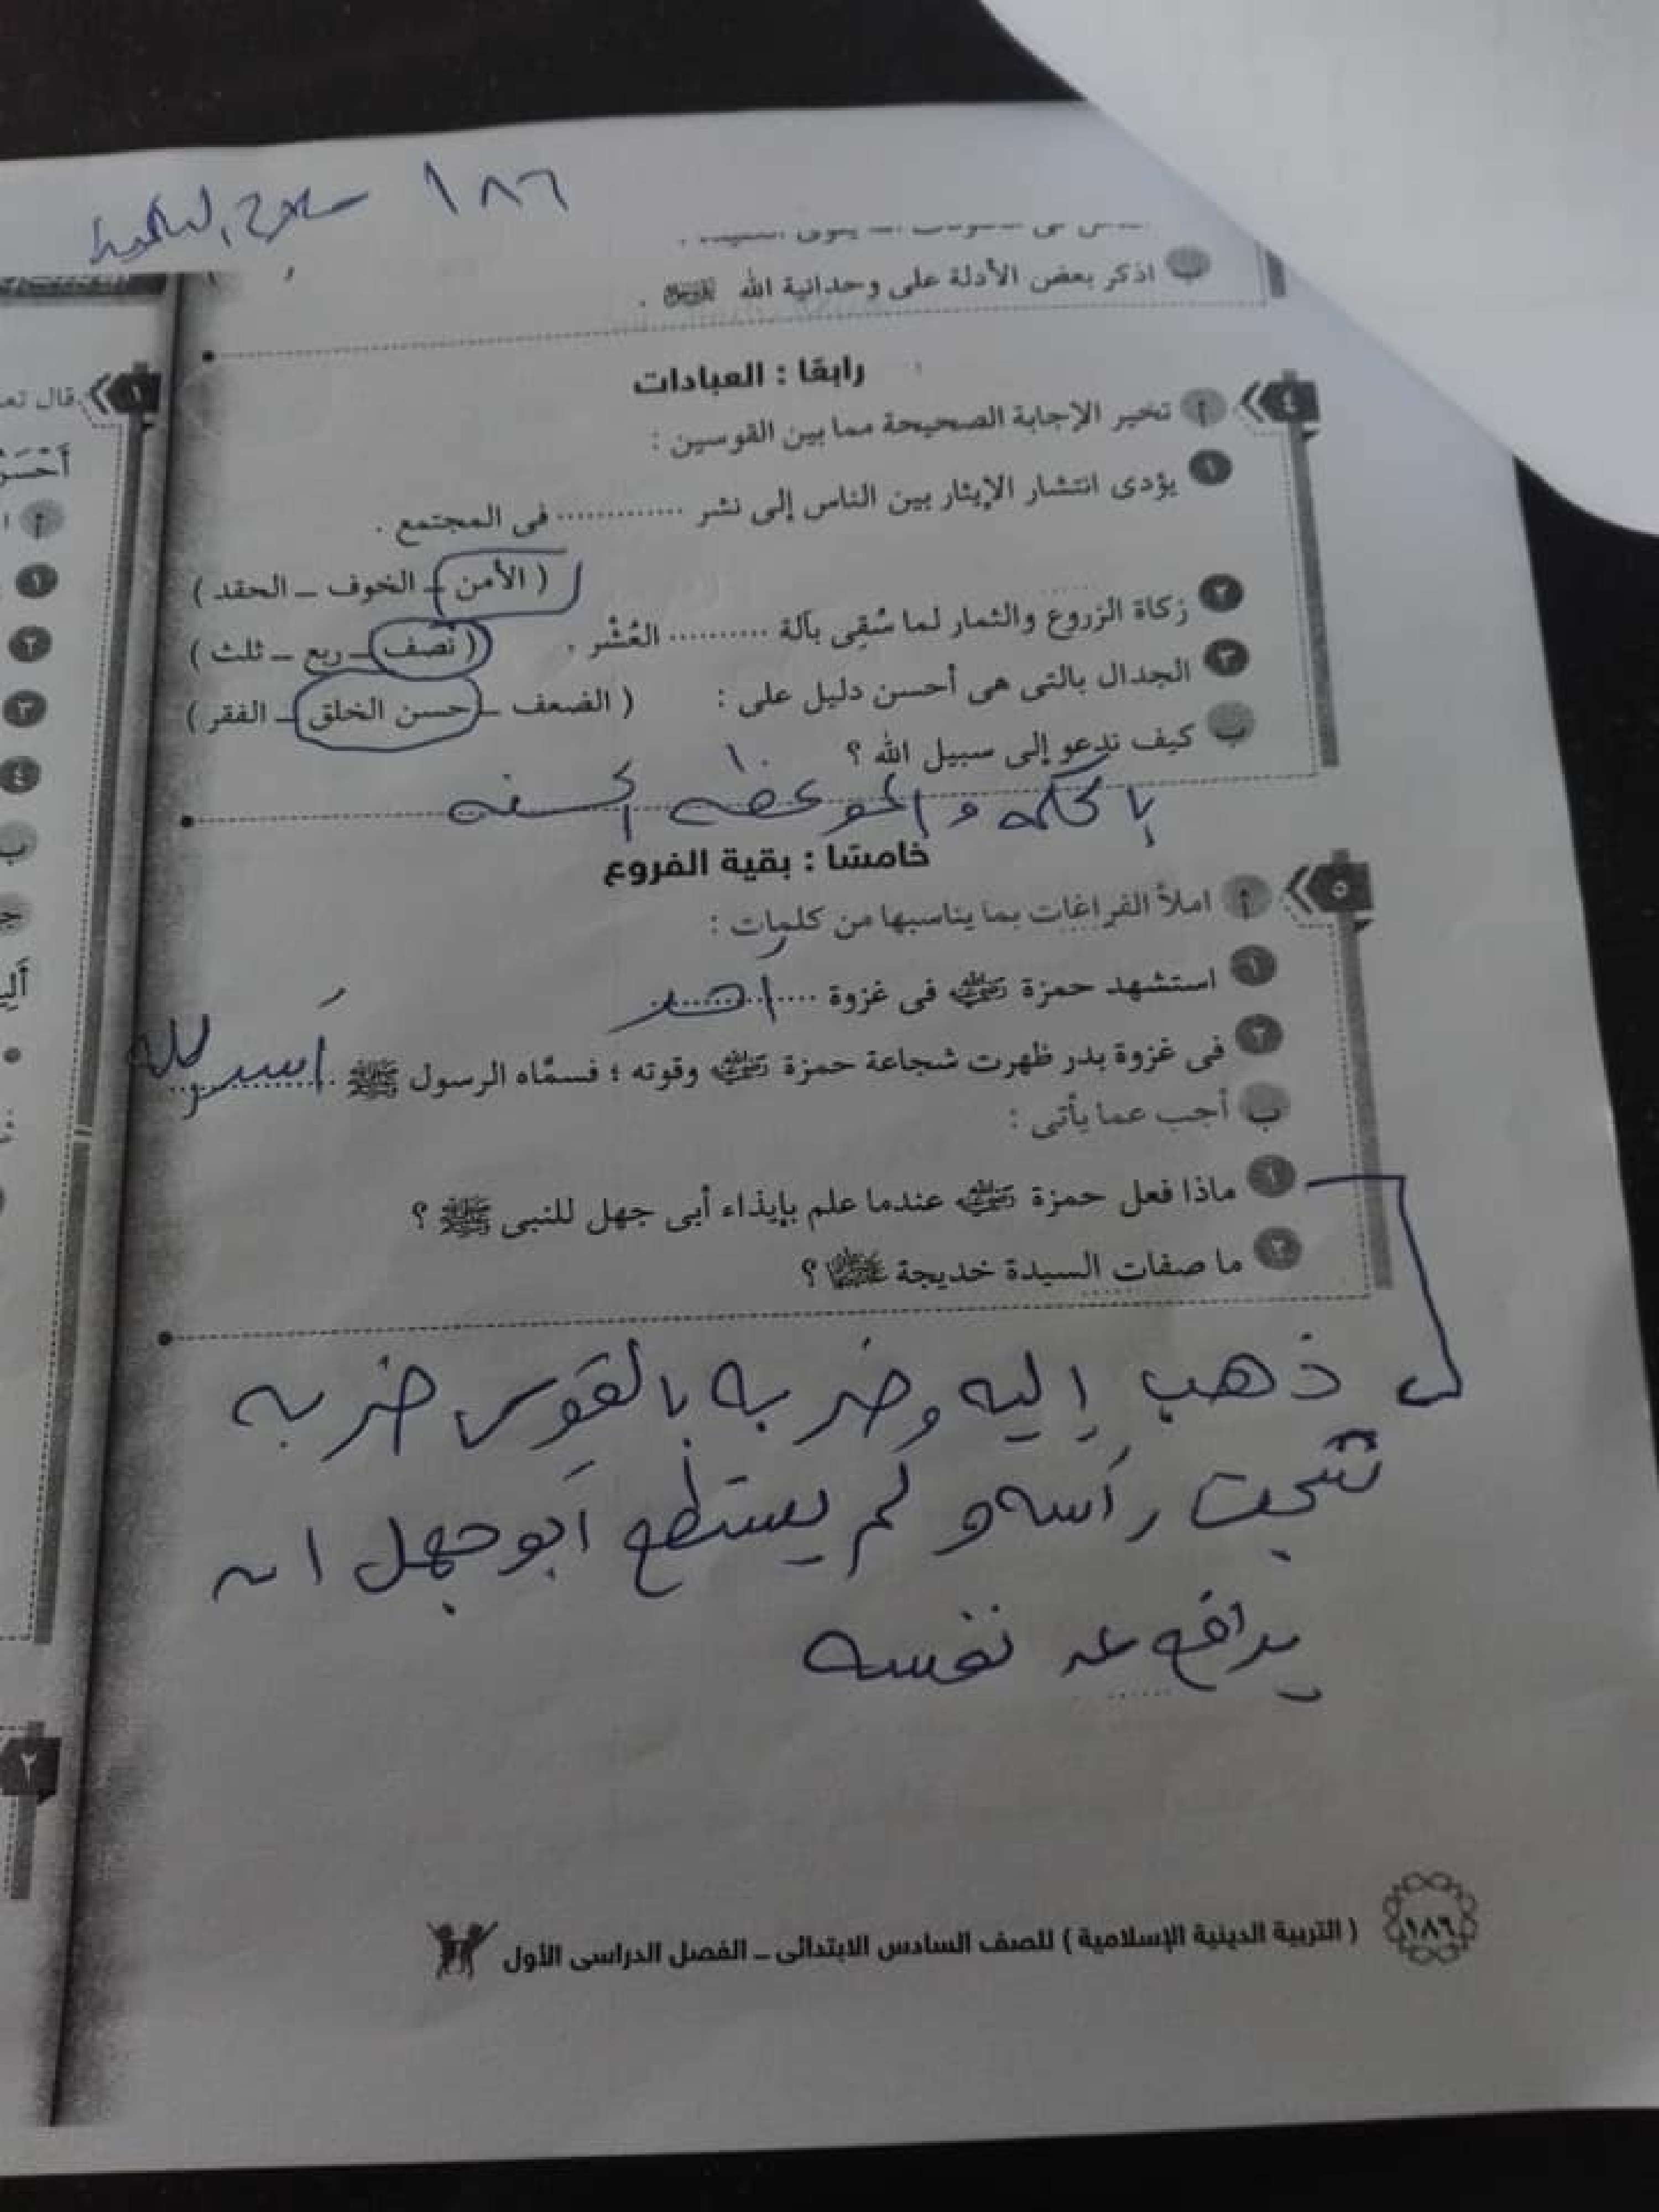 ١٨٦
ب اذكر بعض الأدلة على وحدانية الله .
رابعًا : العبادات
٤
أ تخير الإجابة الصحيحة مما بين القوسين :
١ يؤدى انتشار الإيثار بين الناس إلى نشر ............. فى المجتمع .
( الأمن – الخوف – الحقد )
٢ زكاة الزروع والثمار لما سُقِى بآلة .......... العُشْر . ( نصف – ربع – ثلث )
٣ الجدال بالتى هى أحسن دليل على : ( الضعف – حسن الخلق – الفقر )
ب كيف تدعو إلى سبيل الله ؟
بالحكمه والموعظه الحسنه
خامسًا : بقية الفروع
٥
أ املأ الفراغات بما يناسبها من كلمات :
١ استشهد حمزة رضي الله عنه فى غزوة .... احد
٢ فى غزوة بدر ظهرت شجاعة حمزة رضي الله عنه وقوته ؛ فسمَّاه الرسول ﷺ أسد الله
ب أجب عما يأتى :
١ ماذا فعل حمزة رضي الله عنه عندما علم بإيذاء أبى جهل للنبى ﷺ ؟
٢ ما صفات السيدة خديجة ؟
ذهب إليه وضربه بالقوس ضربه
شجت رأسه ولم يستطع أبو جهل ان
يدافع عن نفسه
١٨٦ ( التربية الدينية الإسلامية ) للصف السادس الابتدائى – الفصل الدراسى الأول
١ قال تعـ
أ
١
٢
٣
٤
ب
جـ
٢